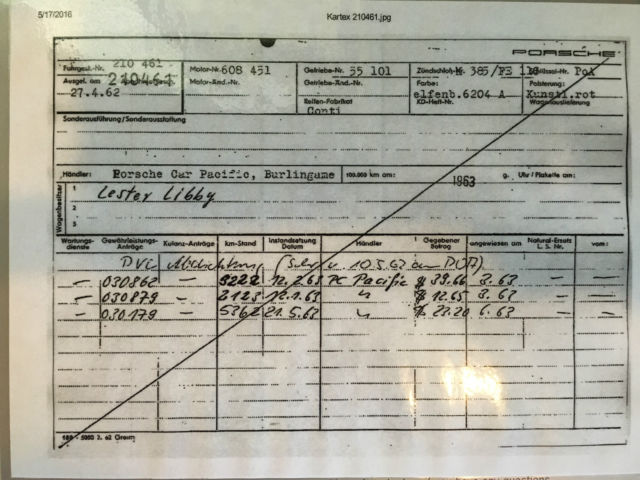 5/17/2016 Kartex 210461.jpg
PORSCHE
Fahrgest.-Nr. 210 461 Motor-Nr. 608 451 Getriebe-Nr. 55 101 Zündschloß-Nr. 385/FE
Ausgel. am 210461 Motor-Änd.-Nr. Getriebe-Änd.-Nr. Farbe: Polsterung:
27.4.62 Reifen-Fabrikat elfenb. 6204 A Kunstl.rot
Conti KD-Heft-Nr. Wagenauslieferung
Sonderausführung/Sonderausstattung
Händler: Porsche Car Pacific, Burlingame 100.000 km am: 1963 g. Uhr / Plakette am:
Wagenbesitzer
1 Lester Libby
2
3
Wartungsdienste Gewährleistungs-Anträge Kulanz-Anträge km-Stand Instandsetzung Datum Händler Gegebener Betrag angewiesen am Natural-Ersatz L. S. Nr. vom:
— 030862 — 3222 12.2.63 PC Pacific $ 39.66 3.63 — —
— 030879 — 2123 12.1.63 " $ 12.65 3.63 — —
— 030179 — 5362 21.5.63 " 6.63 — —
189 - 5000 2. 62 Graum